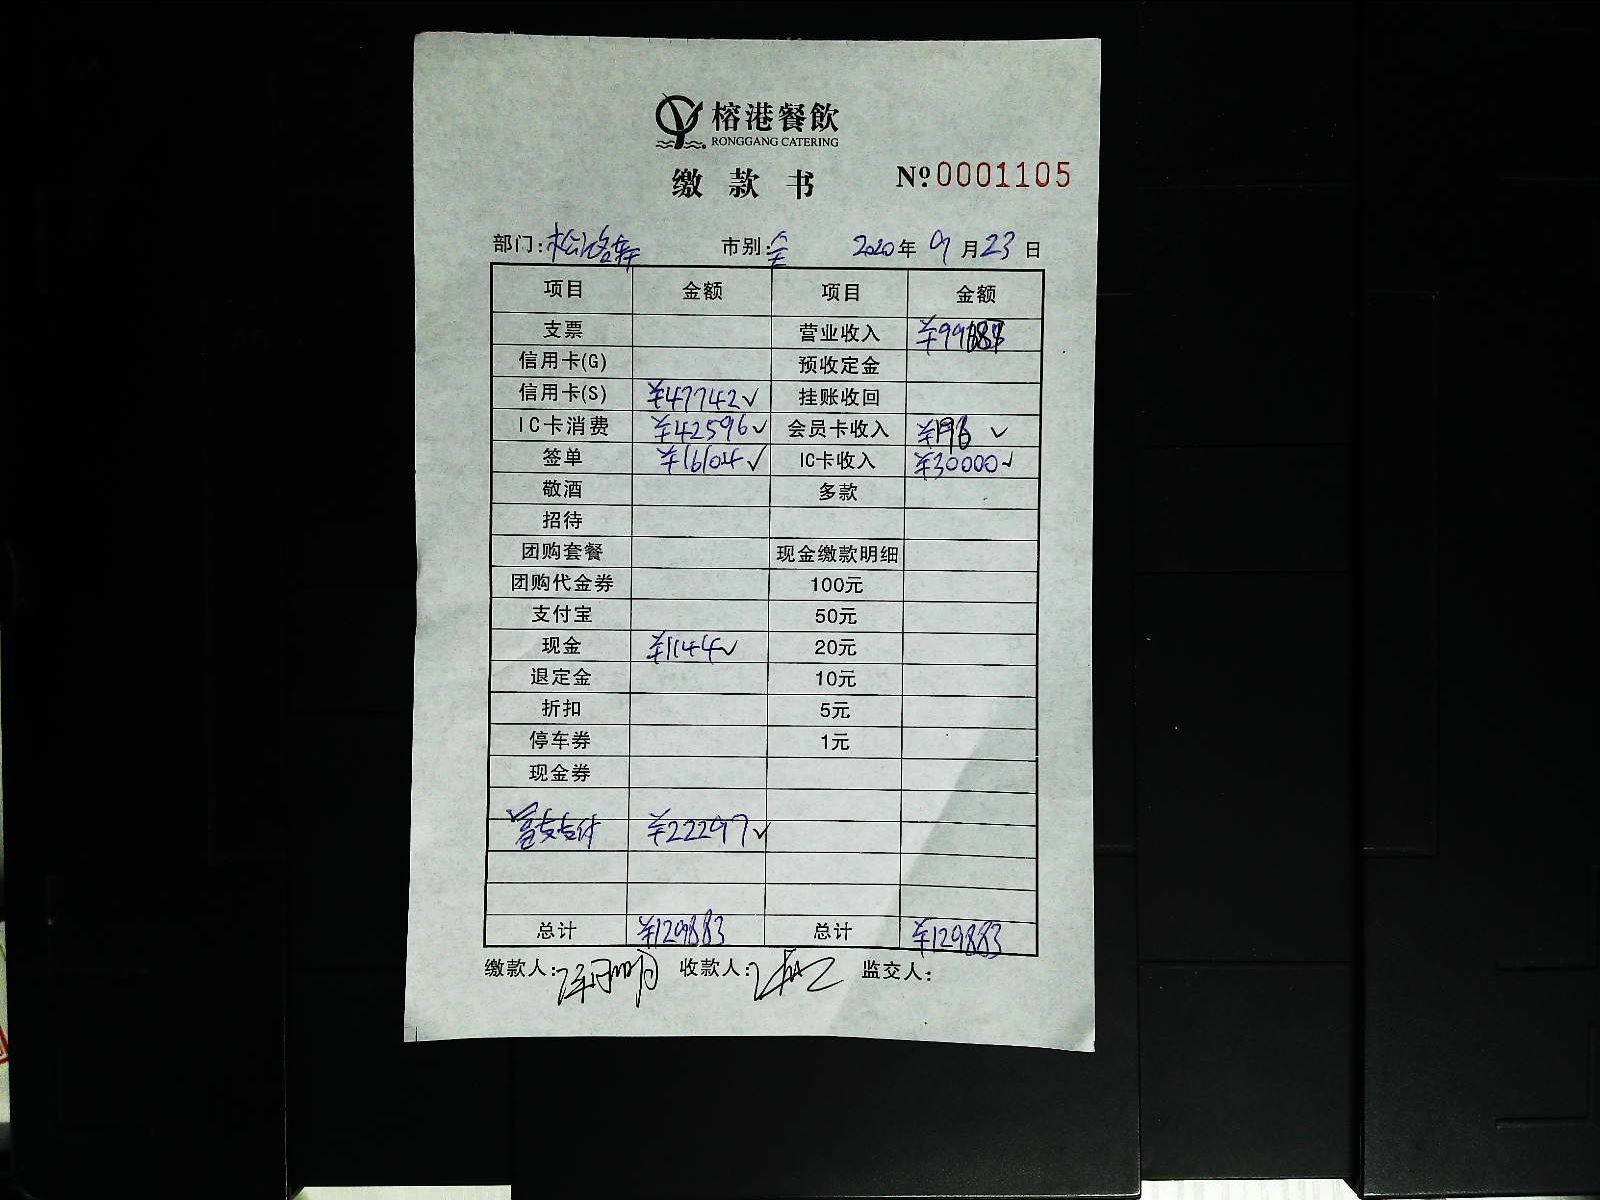 榕港餐飲
RONGGANG CATERING
缴款书 №0001105
部门: 市别:全 2020年 9月23日
项目 金额 项目 金额
支票 营业收入 ¥99687
信用卡(G) 预收定金
信用卡(S) ¥47742✓ 挂账收回
IC卡消费 ¥42596✓ 会员卡收入 ¥196 ✓
签单 ¥16104✓ IC卡收入 ¥30000✓
敬酒 多款
招待
团购套餐 现金缴款明细
团购代金券 100元
支付宝 50元
现金 ¥1144✓ 20元
退定金 10元
折扣 5元
停车券 1元
现金券
支付 ¥22297✓
总计 ¥129883 总计 ¥129883
缴款人: 收款人: 监交人: